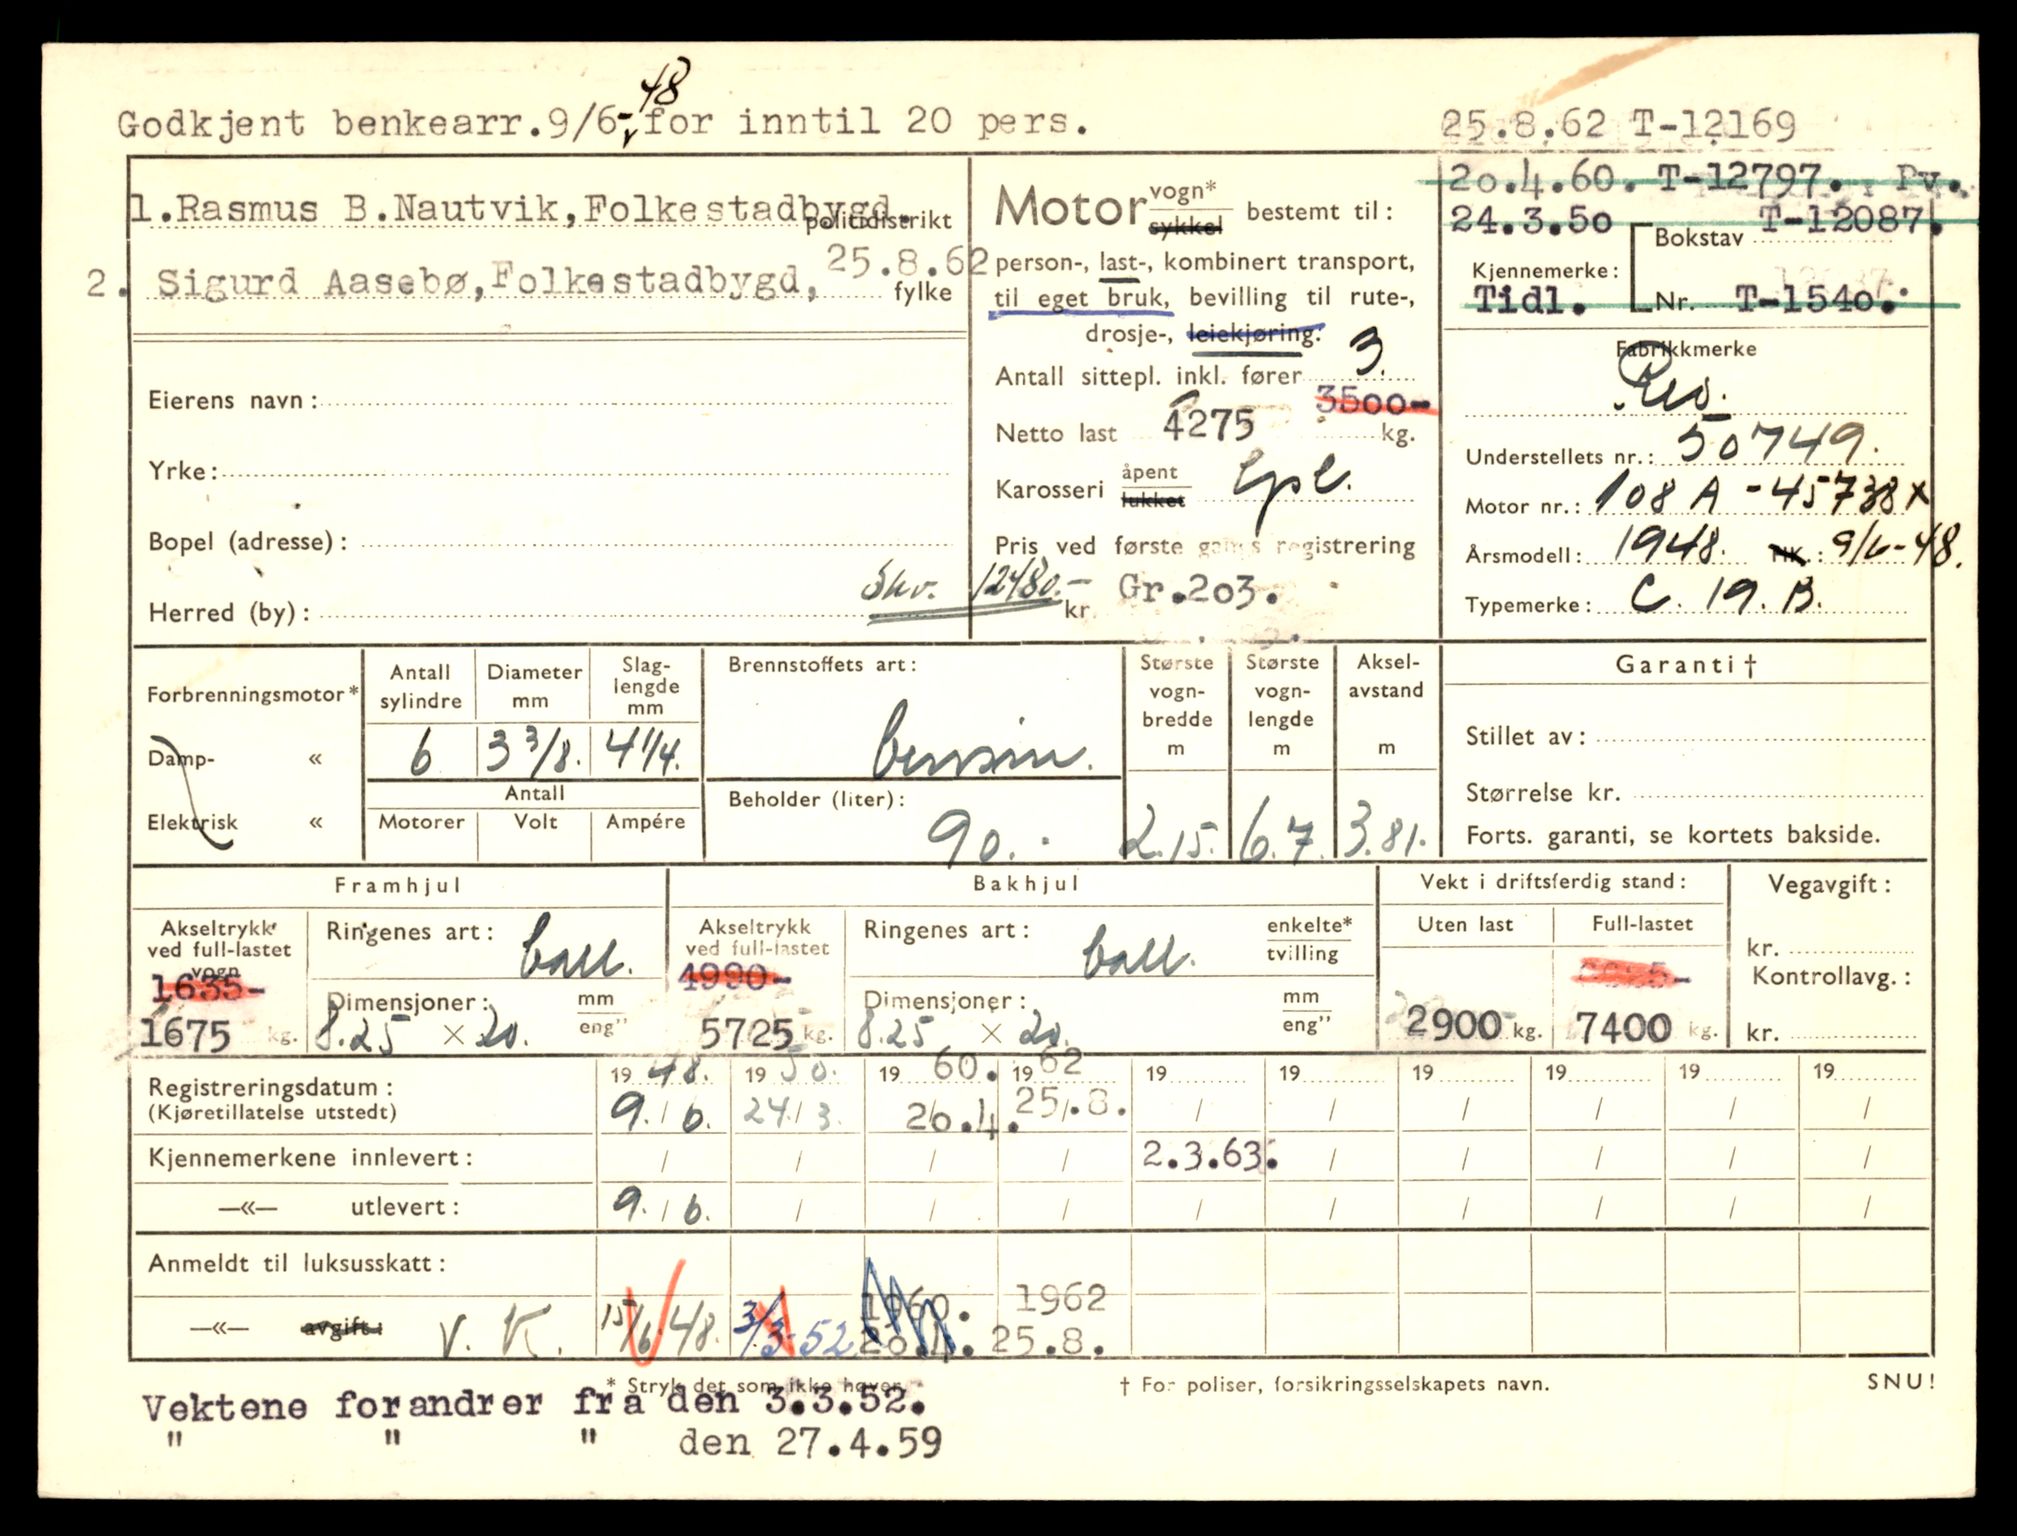 Godkjent benkearr.9/6-48 for inntil 20 pers.
25.8.62 T-12169
1.Rasmus B.Nautvik,Folkestadbygd.
politidistrikt
2. Sigurd Aasebø,Folkestadbygd, 25.8.62
fylke
Eierens navn:
Yrke:
Bopel (adresse):
Herred (by):
Motor vogn* sykkel bestemt til:
person-, last-, kombinert transport,
til eget bruk, bevilling til rute-,
drosje-, leiekjøring:
Antall sittepl. inkl. fører 3.
3500-
Netto last 4275 kg.
Karosseri åpent lukket
Pris ved første gangs registrering
Skv. 12480.- kr. Gr.203.
20.4.60. T-12797. Pv.
24.3.50 T-12087.
Bokstav
Kjennemerke:
Tidl. Nr. T-1540.
Fabrikkmerke
Reo.
Understellets nr.: 50749.
Motor nr.: 108 A - 45738 x
Årsmodell: 1948. HK.: 9/6-48.
Typemerke: C. 19. B.
Forbrenningsmotor*
Damp- «
Elektrisk «
Antall sylindre
6
Diameter mm
3 3/8.
Slag-lengde mm
4 1/4.
Antall
Motorer Volt Ampére
Brennstoffets art:
bensin.
Beholder (liter):
90.
Største vogn-bredde m
2.15.
Største vogn-lengde m
6.7
Aksel-avstand m
3.81.
Garanti †
Stillet av:
Størrelse kr.
Forts. garanti, se kortets bakside.
Framhjul
Akseltrykk ved full-lastet vogn
1635-
1675 kg.
Ringenes art: ball.
Dimensjoner: mm eng"
8.25 × 20.
Bakhjul
Akseltrykk ved full-lastet
4990-
5725 kg.
Ringenes art: ball. enkelte* tvilling
Dimensjoner: mm eng"
8.25 × 20.
Vekt i driftsferdig stand:
Uten last Full-lastet
2900 kg. 7400 kg.
Vegavgift:
kr.
Kontrollavg.:
kr.
Registreringsdatum: 1948. 1950. 1960. 1962 19 19 19 19 19 19
(Kjøretillatelse utstedt) 9./6. 24./3. 20.4. 25.8. / / / / / /
Kjennemerkene innlevert: / / / / 2.3.63. / / / / /
—«— utlevert: 9./6. / / / / / / / / /
Anmeldt til luksusskatt:
—«— avgift: V. K. 15/6-48. 3/3-52 1960. 20.4. 1962 25.8.
* Stryk det som ikke høver. † For poliser, forsikringsselskapets navn. SNU!
Vektene forandrer fra den 3.3.52.
" " " den 27.4.59